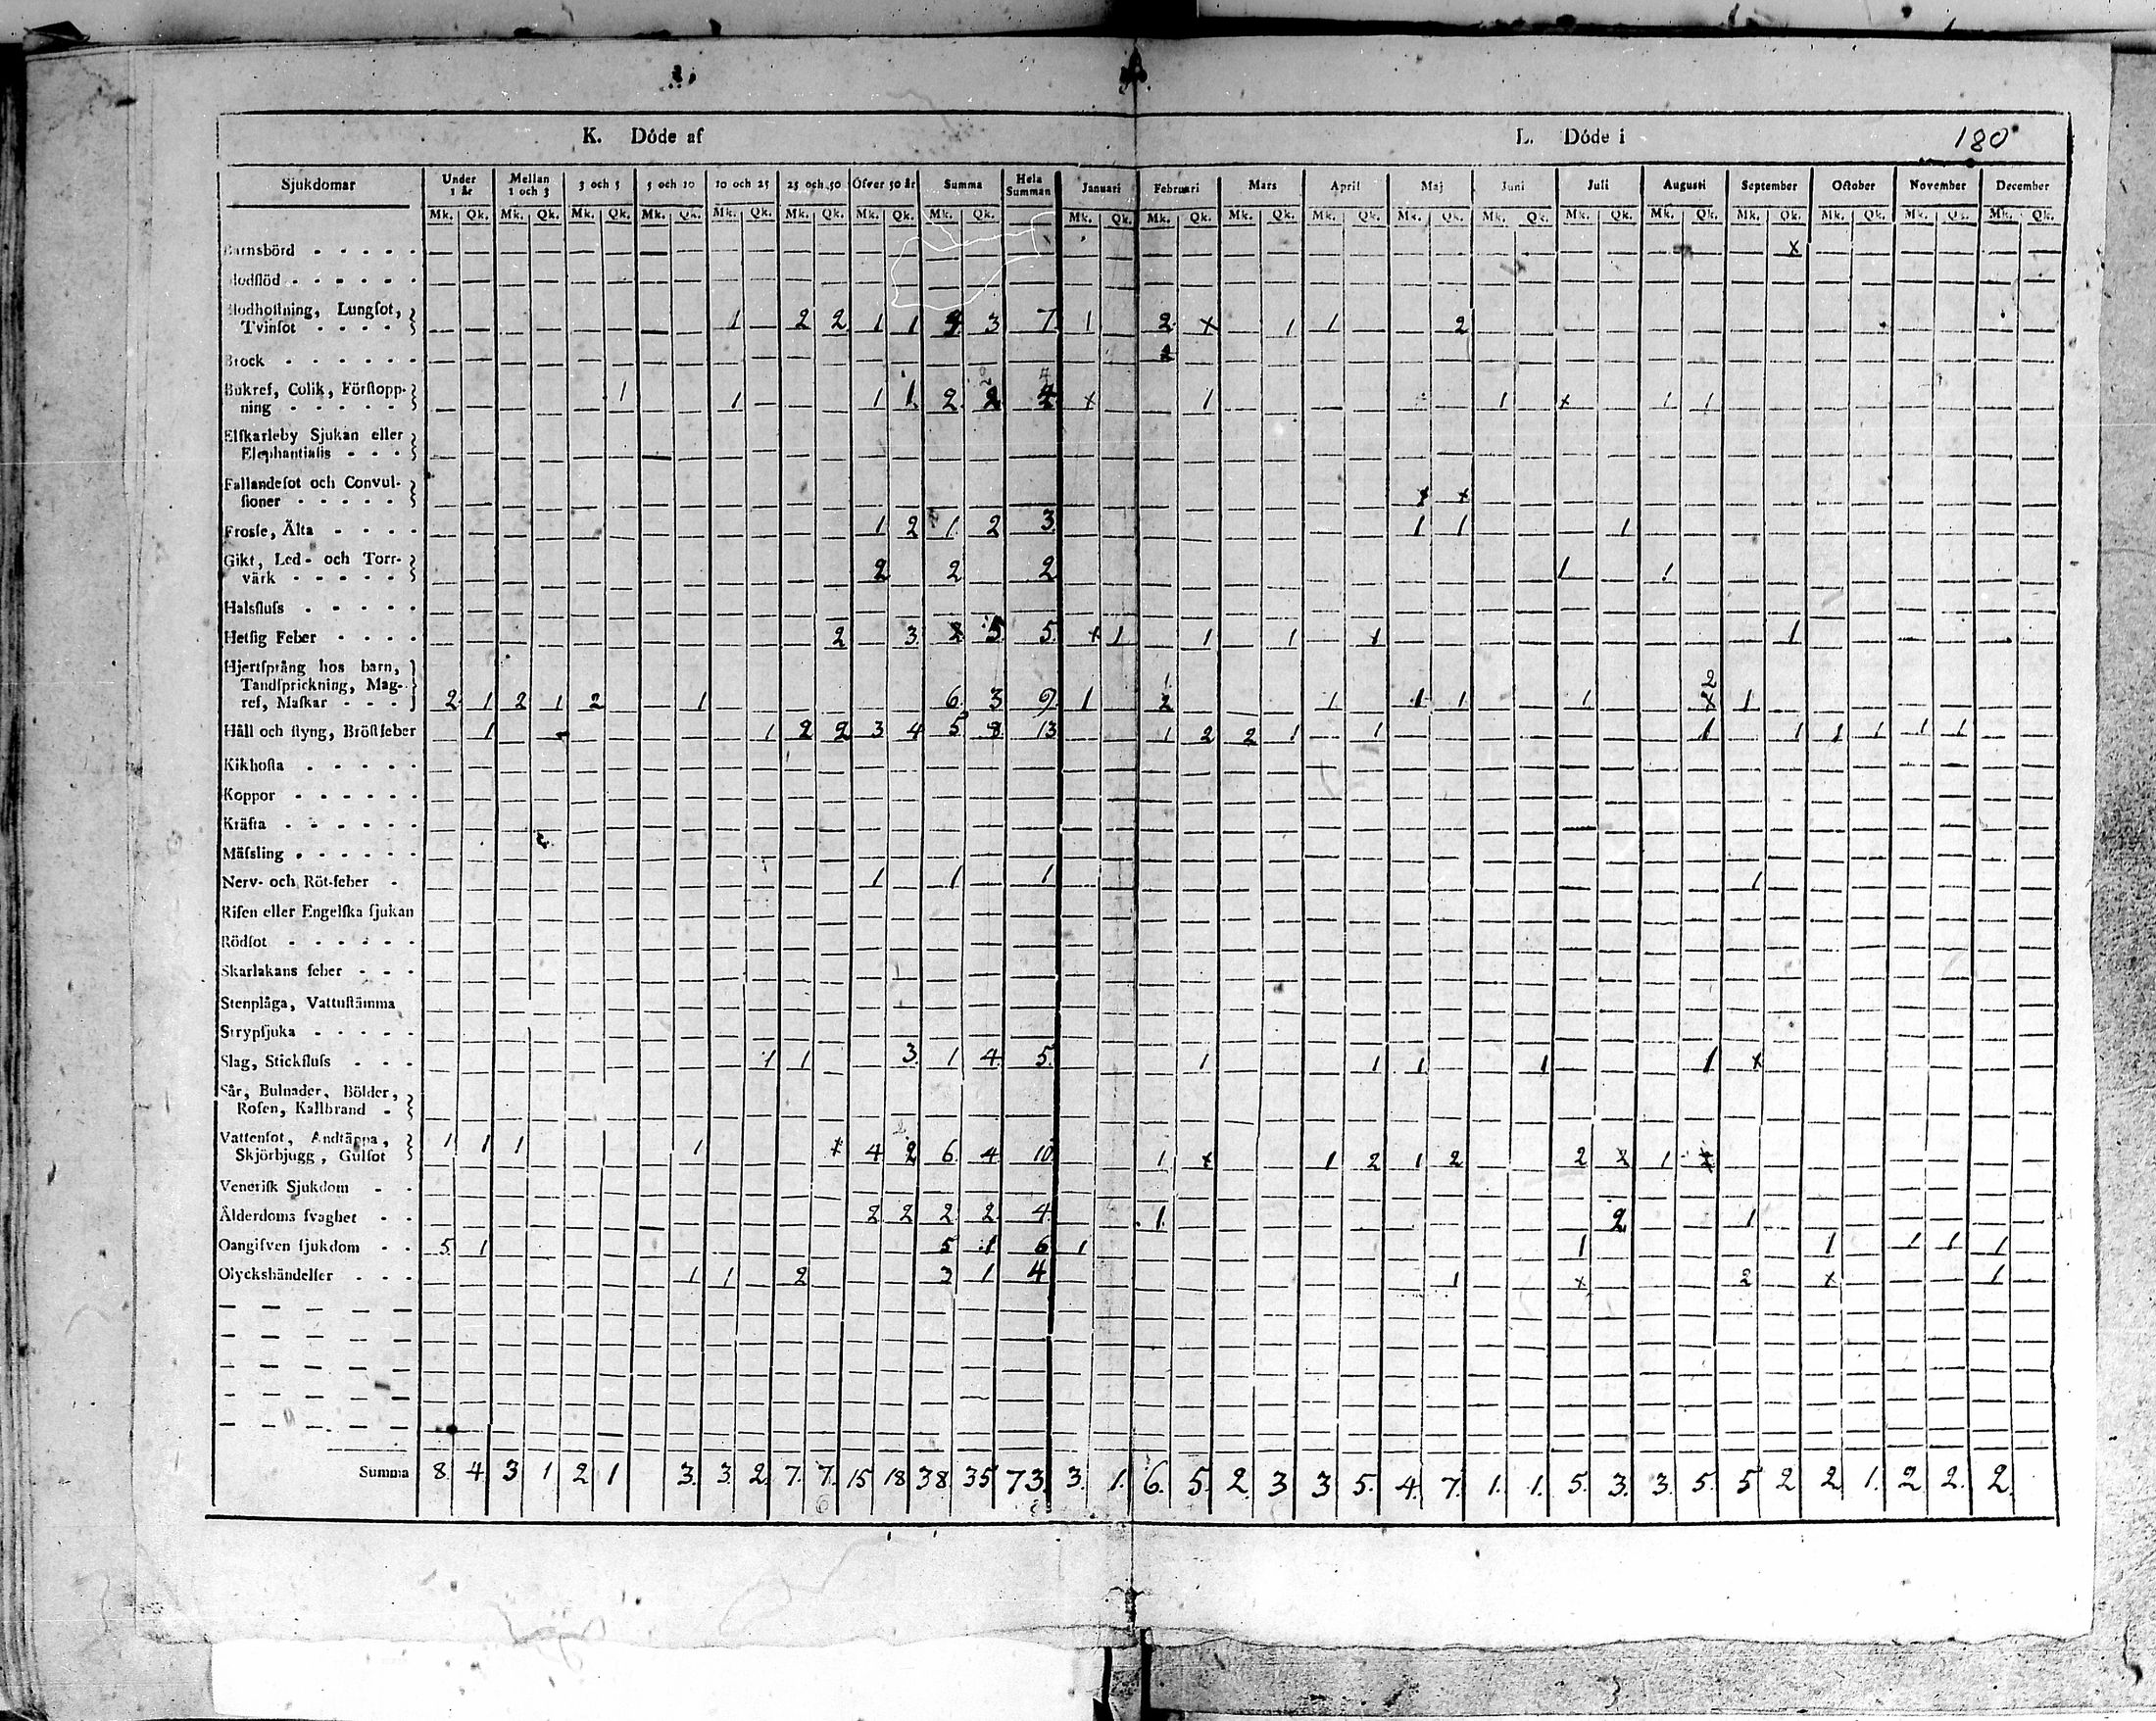 K. Döde af
L. Döde i 180
Sjukdomar Under 1 år Mellan 1 och 3 3 och 5 5 och 10 10 och 25 25 och 50 Öfver 50 år Summa Hela Summan Januari Februari Mars April Maj Juni Juli Augusti September October November December
Mk. Qk. Mk. Qk. Mk. Qk. Mk. Qk. Mk. Qk. Mk. Qk. Mk. Qk. Mk. Qk. Mk. Qk. Mk. Qk. Mk. Qk. Mk. Qk. Mk. Qk. Mk. Qk. Mk. Qk. Mk. Qk. Mk. Qk. Mk. Qk. Mk. Qk. Mk. Qk.
Barnsbörd x
Blodflöd
Blodhostning, Lungsot,
Tvinsot 1 2 2 1 1 3 7 1 2 x 1 1 2
Brock
Bukref, Colik, Förstopp-
ning 1 1 1 1 2 2 4 x 1 1 x 1 1
Elfkarleby Sjukan eller
Elephantiasis
Fallandesot och Convul-
sioner x x
Frossa, Älta 1 2 1 2 3 1 1 1
Gikt, Led- och Torr-
värk 2 2 2 1 1
Halsfluss
Hetsig Feber 2 3 x 5 5 x 1 1 1 1 1
Hjertsprång hos barn,
Tandsprickning, Mag-
ref, Maskar 2 1 2 1 2 1 6 3 9 1 1 1 1 1 1 2 1
Håll och styng, Bröstfeber 1 1 2 2 3 4 5 8 13 1 2 2 1 1 1 1 1 1 1 1
Kikhosta
Koppor
Kräfta
Mässling
Nerv- och Röt-feber 1 1 1 1
Risen eller Engelska sjukan
Rödsot
Skarlakans feber
Stenplåga, Vattustämma
Strypsjuka
Slag, Stickfluss 1 1 3 1 4 5 1 1 1 1 1 x
Sår, Bulnader, Bölder,
Rosen, Kallbrand
Vattensot, Andtäppa,
Skjörbjugg, Gulsot 1 1 1 1 x 4 2 6 4 10 1 x 1 2 1 2 2 x 1 x
Venerisk Sjukdom
Ålderdoms svaghet 2 2 2 2 4 1 2 1
Oangifven sjukdom 5 1 5 1 6 1 1 1 1 1 1
Olyckshändelser 1 1 2 3 1 4 1 x 2 x 1
Summa 8 4 3 1 2 1 3 3 2 7 7 15 18 38 35 73 3 1 6 5 2 3 3 5 4 7 1 1 5 3 3 5 5 2 2 1 2 2 2